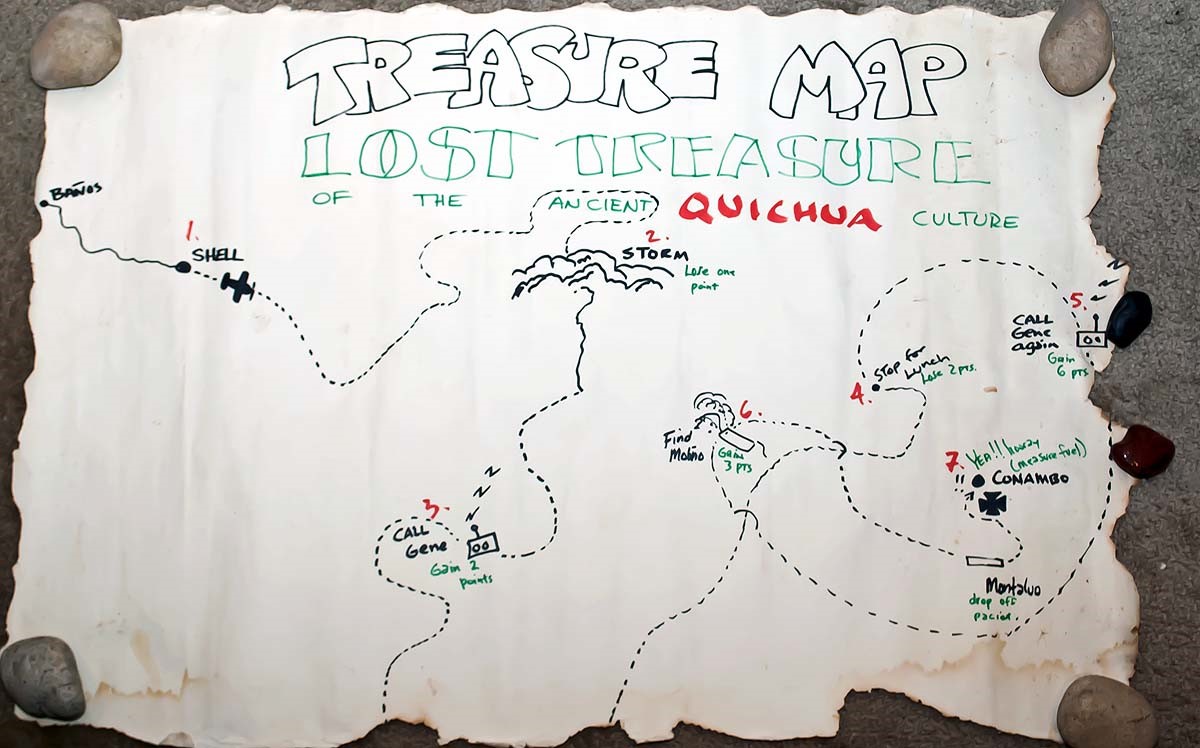 TREASURE MAP
LOST TREASURE
OF THE ANCIENT QUICHUA CULTURE
BAÑOS
1.
SHELL
2.
STORM
Lose one
point
3.
CALL
Gene
Gain 2
points
4.
STOP for
Lunch
Lose 2 pts.
5.
CALL
Gene
again
Gain
6 PTS
6.
Find
Gain
3 PTS
7.
YEA!! hooray
(measure fuel)
CONAMBO
Montalvo
drop off